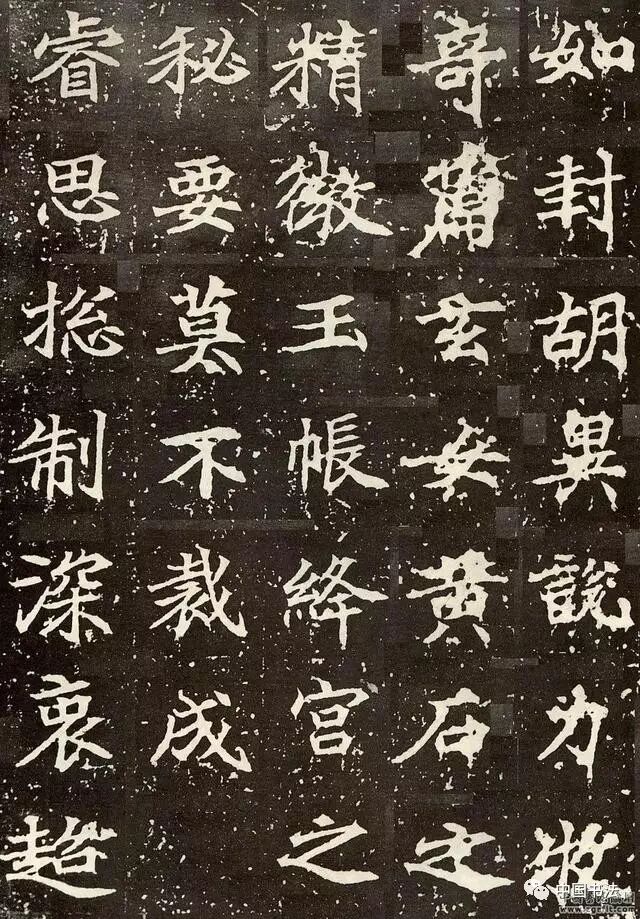 如封胡異說力牧
奇篇玄女黃石之
精微玉帳絳宮之
秘要莫不裁成
睿思捴制深衷超
中国书法